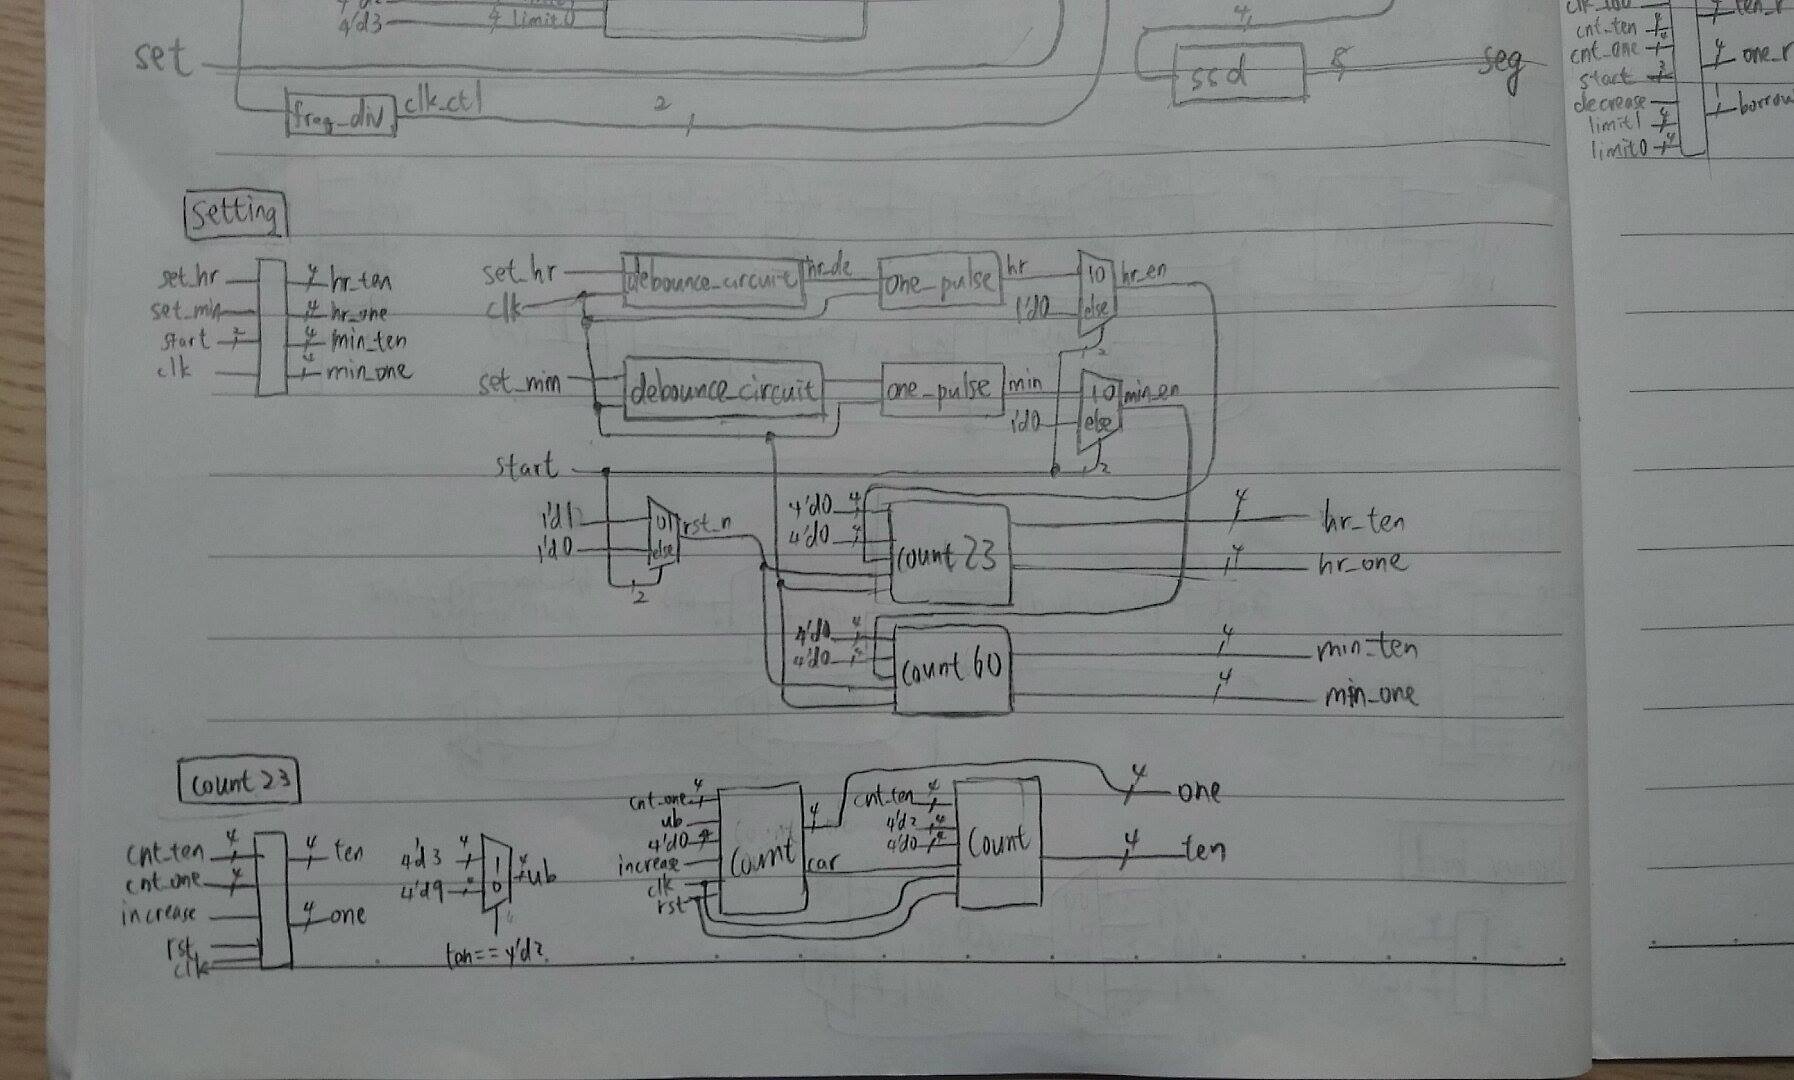 4'd3 4 limit0
set
freq_div clk_ctl 2
4
ssd seg
cnt_ten 4
cnt_one
start 2
decrease
limit1 4
limit0 4
ten_r
4 one_r
1 borrow
setting
set_hr 4 hr_ten
set_min 4 hr_one
start 2 4 min_ten
clk 4 min_one
set_hr debounce_circuit hr_de one_pulse hr 10 hr_en
clk 1'd0 else
2
set_min debounce_circuit one_pulse min 10 min_en
1'd0 else
start 2
1'd1 01 rst_n
1'd0 else
2
4'd0 4
4'd0 4
count 23
4 hr_ten
4 hr_one
4'd0 4
4'd0 4
count 60
4 min_ten
4 min_one
count 23
cnt_ten 4 4 ten
cnt_one 4
increase 4 one
rst
clk
4'd3 4 1 4 ub
4'd9 0
ten == 4'd2
cnt_one 4
ub
4'd0 4
increase
clk
rst
count
4
car
cnt_ten 4
4'd2 4
4'd0 4
count
4 one
4 ten